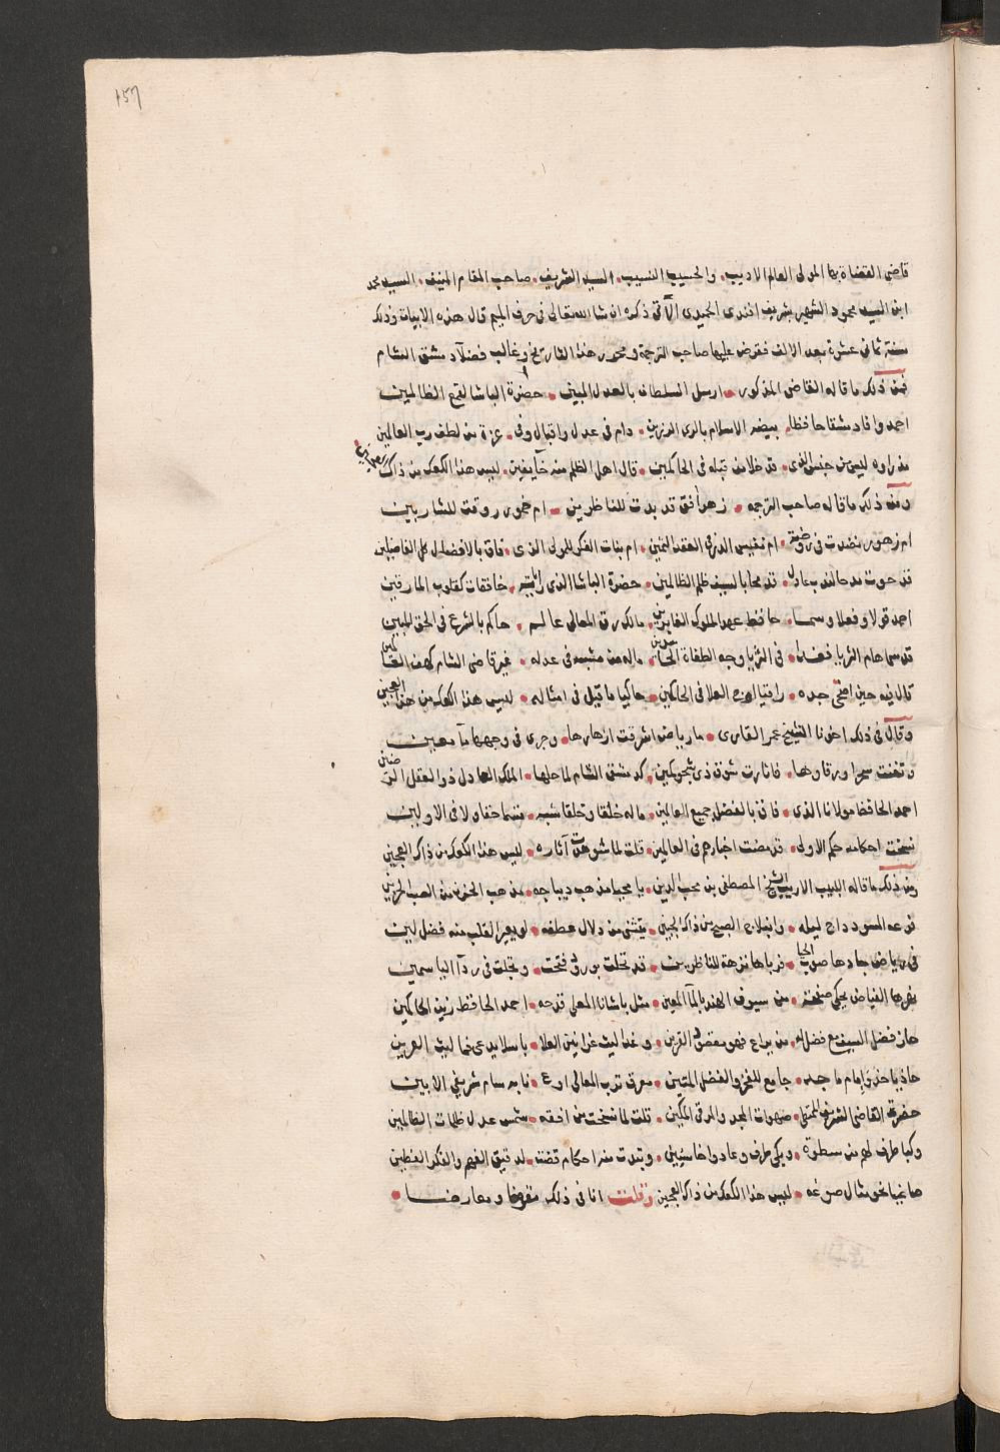 ١٥٦
قاضي القضاة بها المولى العالم الاديب. والحسيب النسيب. السيد الشريف. صاحب المقام المنيف. السيد محمد
ابن السيد محمود الشهير بشريف افندى الحميدى الآتى ذكره ان شا الله تعالى فى حرف الميم قال هذه الابيات وذلك
سنة ثمانى عشرة بعد الالف فقرض عليها صاحب الترجمة ومحرر هذا التاريخ وغالب فضلآ دمشق الشام
فمن ذلك ما قاله القاضى المذكور. ارسل السلطان بالعدل المبين. حضرة الباشا لقمع الظالمين
احمد وافا دمشقا حافظا. بيضة الاسلام بالراى الرزين. دام فى عدل واقبال وفى. عزة من لطف رب العالمين
مذ راوه ليس من جنس الذى. قد خلا من قبله فى الحاكمين. قال اهل الظلم منه خايفين. ليس هذا الكعك من ذاك العجين
ومن ذلك ما قاله صاحب الترجمه. زهر أفق قد بدت للناظرين. ام خمور روقت للشاربين
ام زهور نضدت فى روضة. ام نفيس الدر فى العقد الثمين. ام بنات الفكر للمولى الذى. فاق بالافضال كل الفاضلين
قد حوت مدحا لذب عادل. قد محا بالسيف ظلم الظالمين. حضرة الباشا الذى راياته. خافقات كقلوب المارقين
احمد قولا وفعلا وسما. حافظ عهد الملوك الغابرين. مالك رق المعالى عالم. حاكم بالشرع فى الحق المبين
قد سما هام الثريا فغدا. فى الثريا وجه الطغاة الحاسدين. ماله من مشبه فى عدله. غير قاضى الشام كهف القاصدين
قال فيه حين اضحى جده. راقيا اوج العلا فى الحاكمين. حاكيا ما قيل فى امثاله. ليس هذا الكعك من هذا العجين
وقال فى ذلك اخونا الشيخ عمر القارى. ما رياض اشرقت ازهارها. وجرى فى وجهها مآ معين
وتغنت سحرا ورقاوها. فاثارت شوق ذى شجو كمين. كدمشق الشام لما حلها. الملك العادل ذو العقل الرصين
احمد الحافظ مولانا الذى. فاق بالفضل جميع العالمين. ماله خلقا وخلقا شبه. قسما حقا ولا فى الاولين
نسخت احكامه حكم الاولى. قد مضت اخبارهم فى العالمين. قلت لما شوهدت آثاره. ليس هذا الكعك من ذاك العجين
ومن ذلك ما قاله اللبيب الاريب الشيخ المصطفى بن محب الدين. يا محيا من حب ديباجه. من حب الحزين
فرعه المسود داج ليله. وانبلاج الصبح من ذاك الجبين. ينثنى من دلال عطفه. لو يعير القلب منه فضل لين
فى رياض جادها صوب الحيا. فرباها نزهة للناظرين. قد تحلت بورود فتحت. وتجلت فى ردآ الياسمين
نهرها الفياض يحكى صفحة. من سيوف الهند بالمآ المعين. مثل باشانا المعلى قدحه. احمد الحافظ زين الحاكمين
حاز فضل السيف مع فضل له. من يراع فهو مفقود القرين. وغدا ليث عرانين العلا. باسلا يدعى نما ليث العرين
حاذيا حذو امام ماجد. جامع للفخر والفضل المتين. معرق ترب المعالى اروع. نابه سام شريفى الابين
حضرة القاضى الشريف المعتلى. صهوات المجد والمرقى المكين. قلت لما نسخت من افقه. شمس عدل ظلمات الظالمين
وكبا طرف لهم من سطوة. وبكى طرف وعادوا خاسئين. وبدت منه احكام قضت. لدقيق الفهم والفكر الفطين
صانها نحو مثال صوغه. ليس هذا الكعك من ذاك العجين وقلت انا فى ذلك مقرضا ومعارضا.